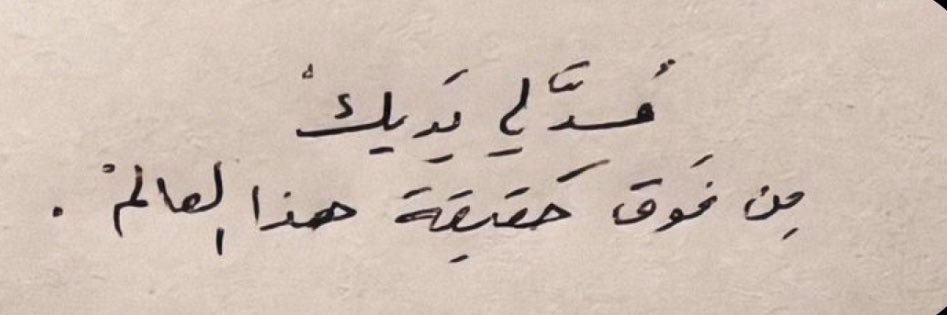 مُدَّ لي يَديكْ
مِن فَوق حَقيقِة هذا العالمْ .